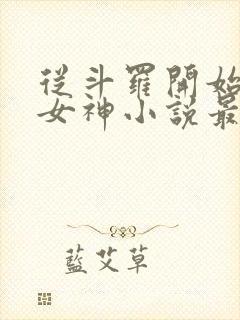 從斗羅開始
女神小說最
藍艾草